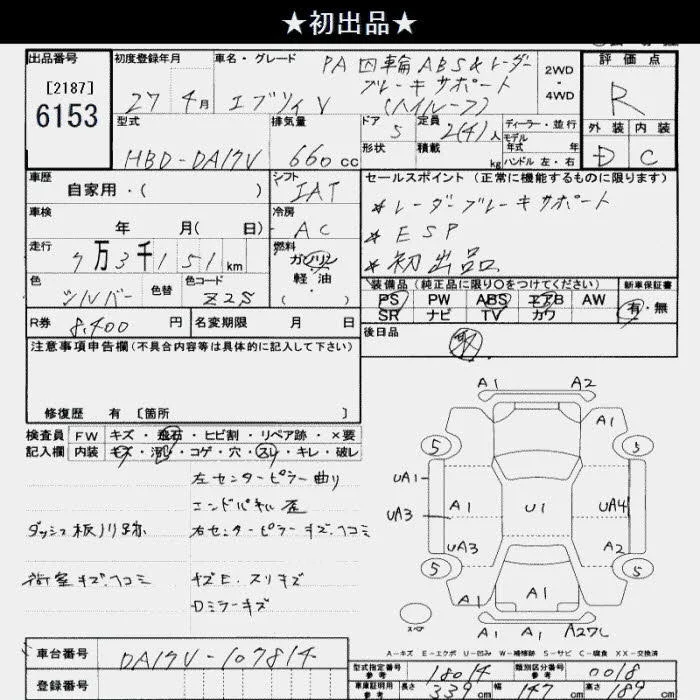 ★初出品★
出品番号
[2187]
6153
初度登録年月
27年 4月
車名・グレード
PA 四輪ABS&レーダー
ブレーキサポート
(ハイルーフ)
エブリィV
2WD
・
4WD
評価点
R
外装 内装
D C
型式
HBD-DA17V
排気量
660 cc
ドア 5
形状
定員 2(4)人
積載 kg
ディーラー・並行
モデル
年式 年
ハンドル 左・右
車歴
自家用・( )
シフト
IAT
車検
年 月( 日)
冷房
AC
走行
7万3千151 km
燃料
ガソリン
軽油
( )
色
シルバー
色替
色コード
Z2S
R券 8,400 円
名変期限 月 日
セールスポイント(正常に機能するものに限ります)
*レーダーブレーキサポート
*ESP
*初出品
装備品(純正品に限り○をつけてください)
PS PW ABS エアB AW
SR ナビ TV カワ
新車保証書
有・無
後日品
取
注意事項申告欄(不具合内容等は具体的に記入して下さい)
修復歴 有 [箇所 ]
検査員
記入欄
FW キズ・飛石・ヒビ割・リペア跡・×要
内装 キズ・汚レ・コゲ・穴・スレ・キレ・破レ
左センターピラー曲り
エンドパネル歪
ダッシュ板ノリ跡 右センターピラーキズ、ヘコミ
荷室キズ、ヘコミ キズE、スリキズ
Dミラーキズ
A1 A2
A1
5 5
UA1
UA3 A1 U1 UA4
UA3 A2
5 5
A1 A1
A1 A1 A27C
スペア
A-キズ E-エクボ U-凹み W-補修跡 S-サビ C-腐食 XX-交換済
車台番号 DA17V-107814
登録番号
型式指定番号
参考
18014
類別区分番号
参考
0018
車両証明用
参考
長さ 339 cm 幅 147 cm 高さ cm